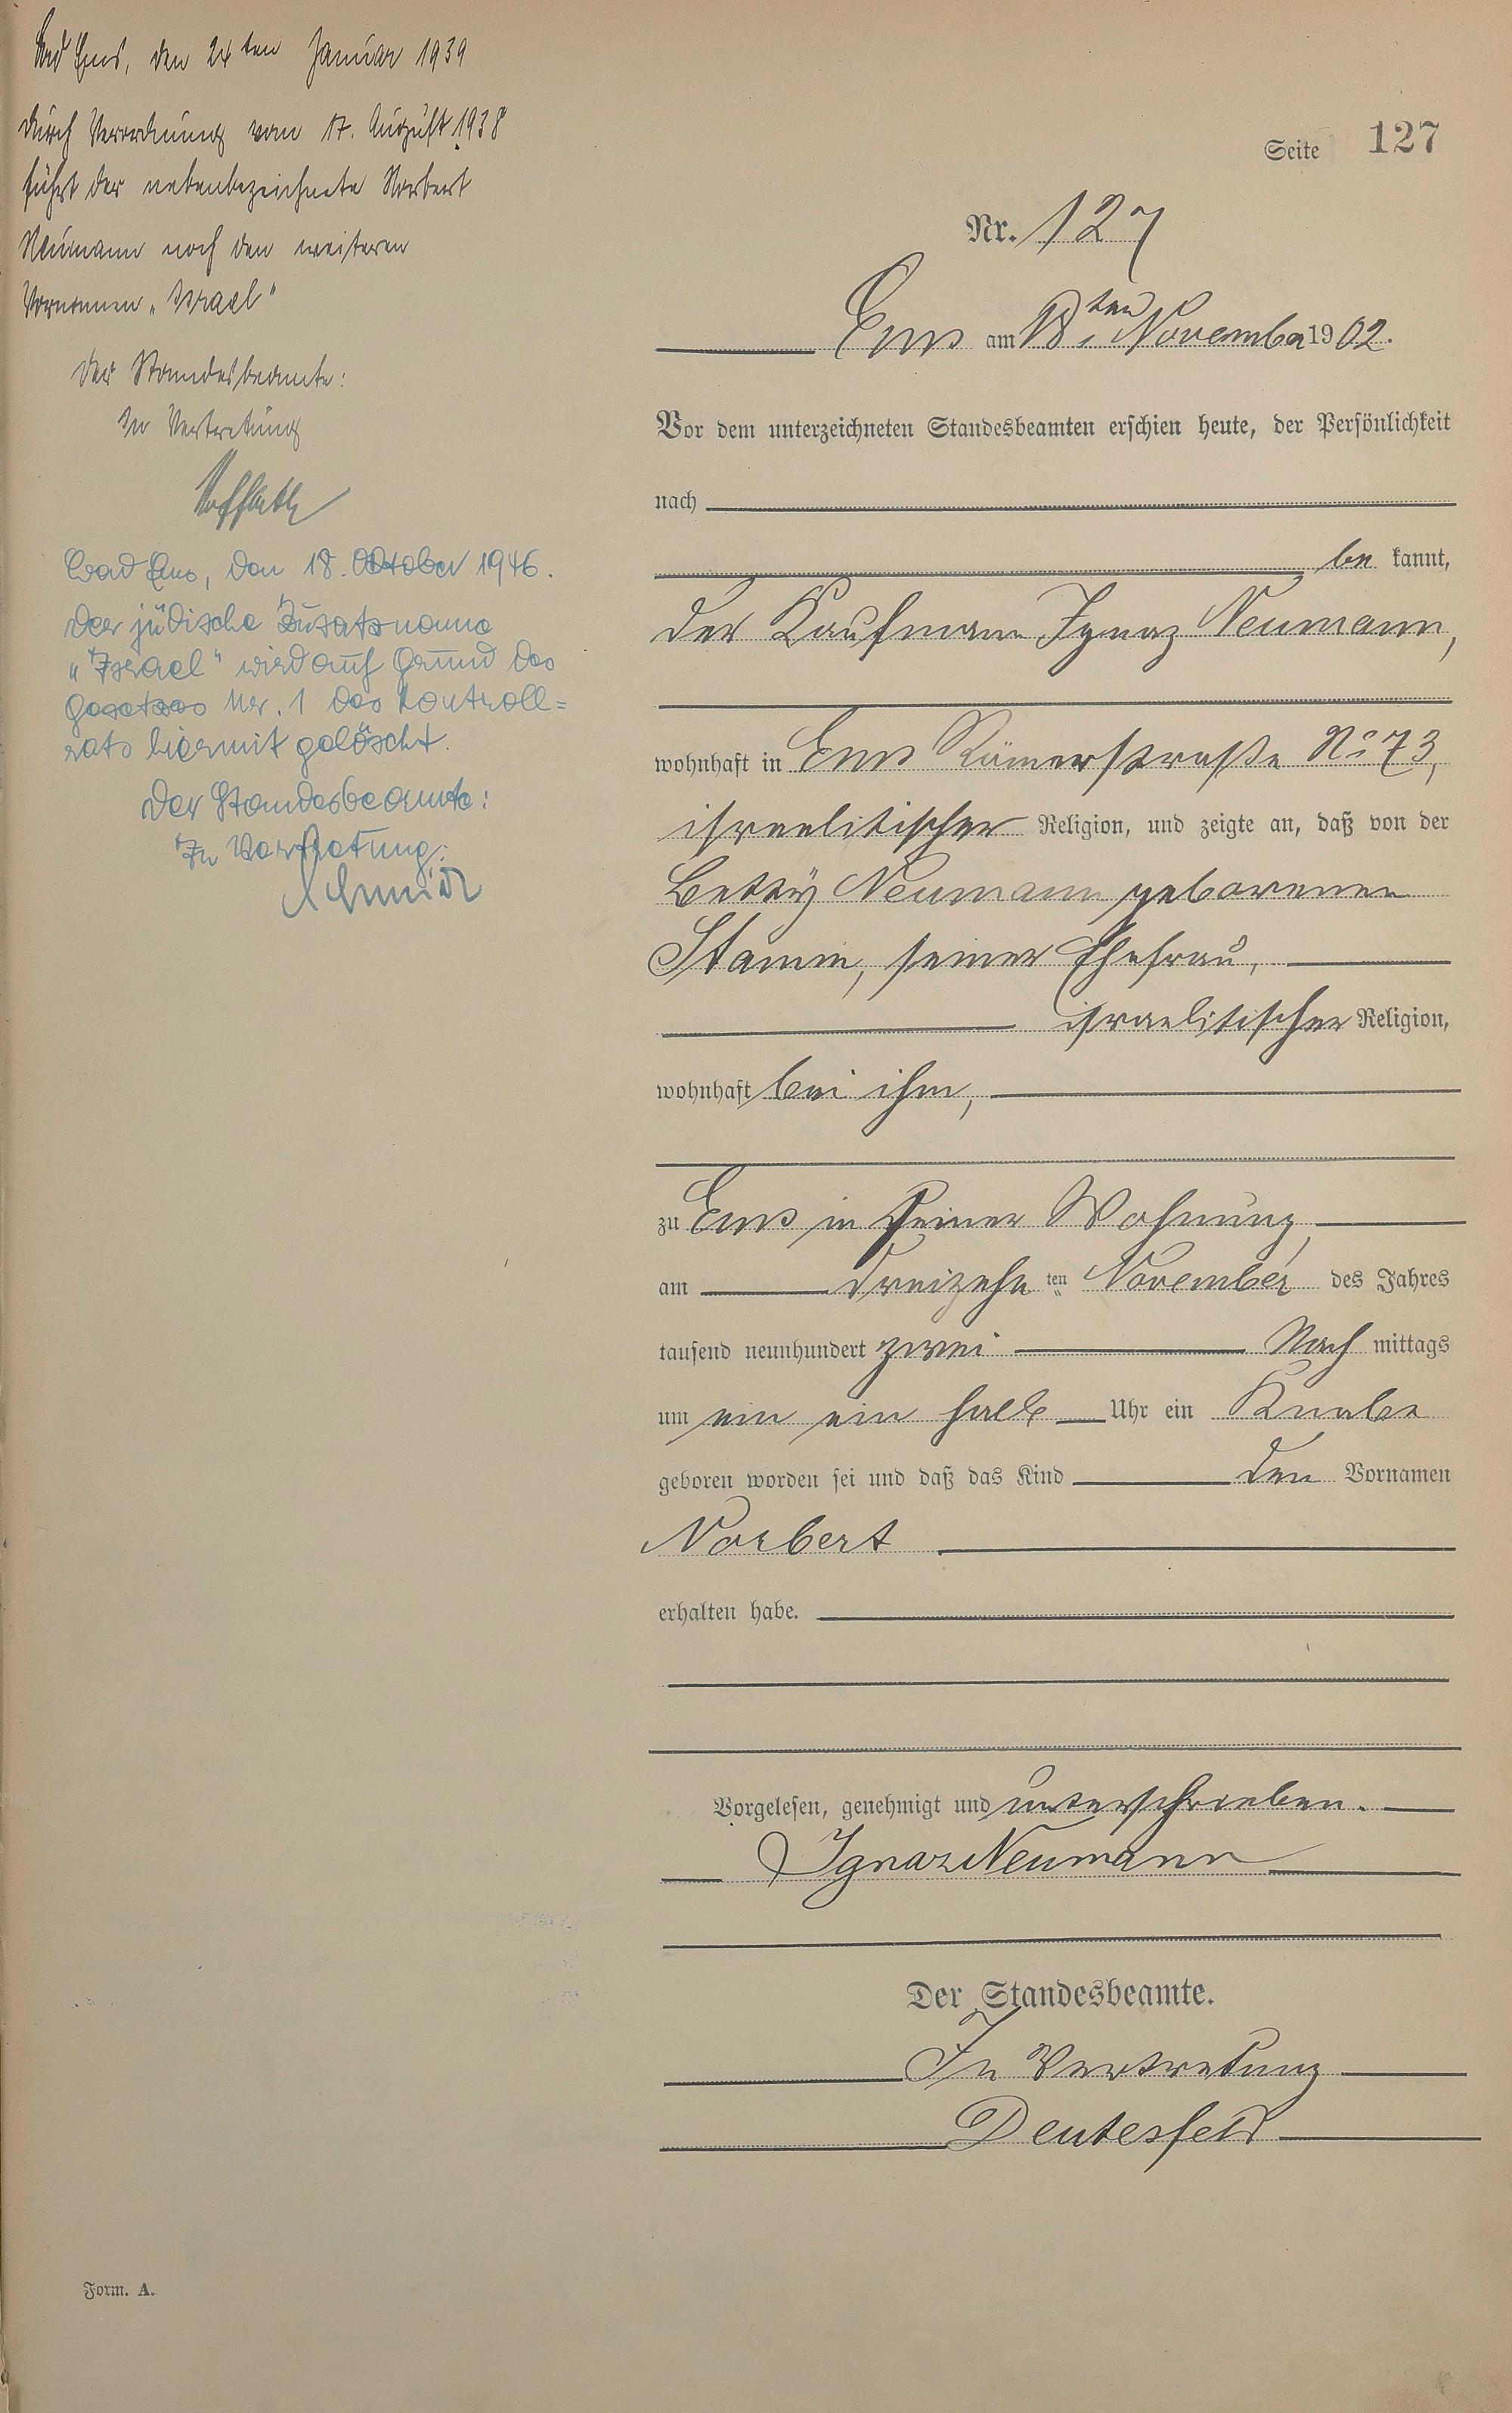 Bad Ems, den 24ten Januar 1939
Durch Verordnung vom 17. August 1938
führt der nebenbezeichnete Norbert
Neumann noch den weiteren
Vornamen „Israel“
Der Standesbeamte:
In Vertretung
Bad Ems, den 18. Oktober 1946.
Der jüdische Zusatzname
„Israel“ wird auf Grund des
Gesetzes Nr. 1 des Kontroll=
rats hiermit gelöscht.
Der Standesbeamte:
In Vertretung:
Schmidt
Seite 127
Nr. 127
Ems am 18ten November 1902.
Vor dem unterzeichneten Standesbeamten erschien heute, der Persönlichkeit
nach
be kannt,
der Kaufmann Ignaz Neumann,
wohnhaft in Ems Römerstraße No 73,
israelitischer Religion, und zeigte an, daß von der
Betty Neumann geborenen
Stamm, seiner Ehefrau,
israelitischer Religion,
wohnhaft bei ihm,
zu Ems in seiner Wohnung,
am dreizehn ten November des Jahres
tausend neunhundert zwei Nach mittags
um ein ein halb Uhr ein Knabe
geboren worden sei und daß das Kind den Vornamen
Norbert
erhalten habe.
Vorgelesen, genehmigt und unterschrieben.
Ignaz Neumann
Der Standesbeamte.
In Vertretung
Deutesfeld
Form. A.